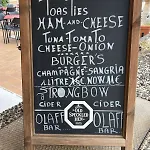 TOASTIES
HAM AND CHEESE
TUNA TOMATO
CHEESE-ONION
BURGERS
CHAMPAGNE-SANGRIA
STRONGBOW
CIDER CIDER
OLD SPECKLED HEN
OLAFF OLAFF
BAR BAR